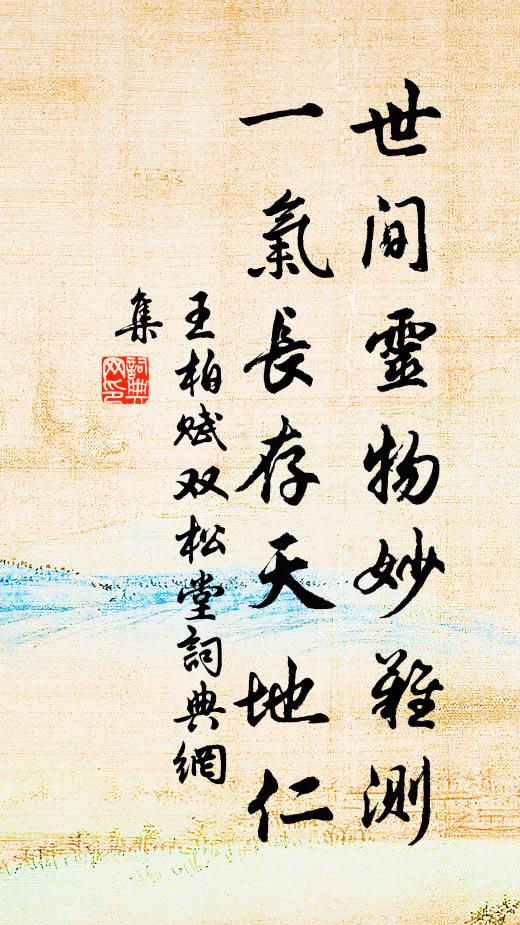 世间靈物妙難測
一氣長存天地仁
王柏赋双松堂詞典網
集
詞典網印